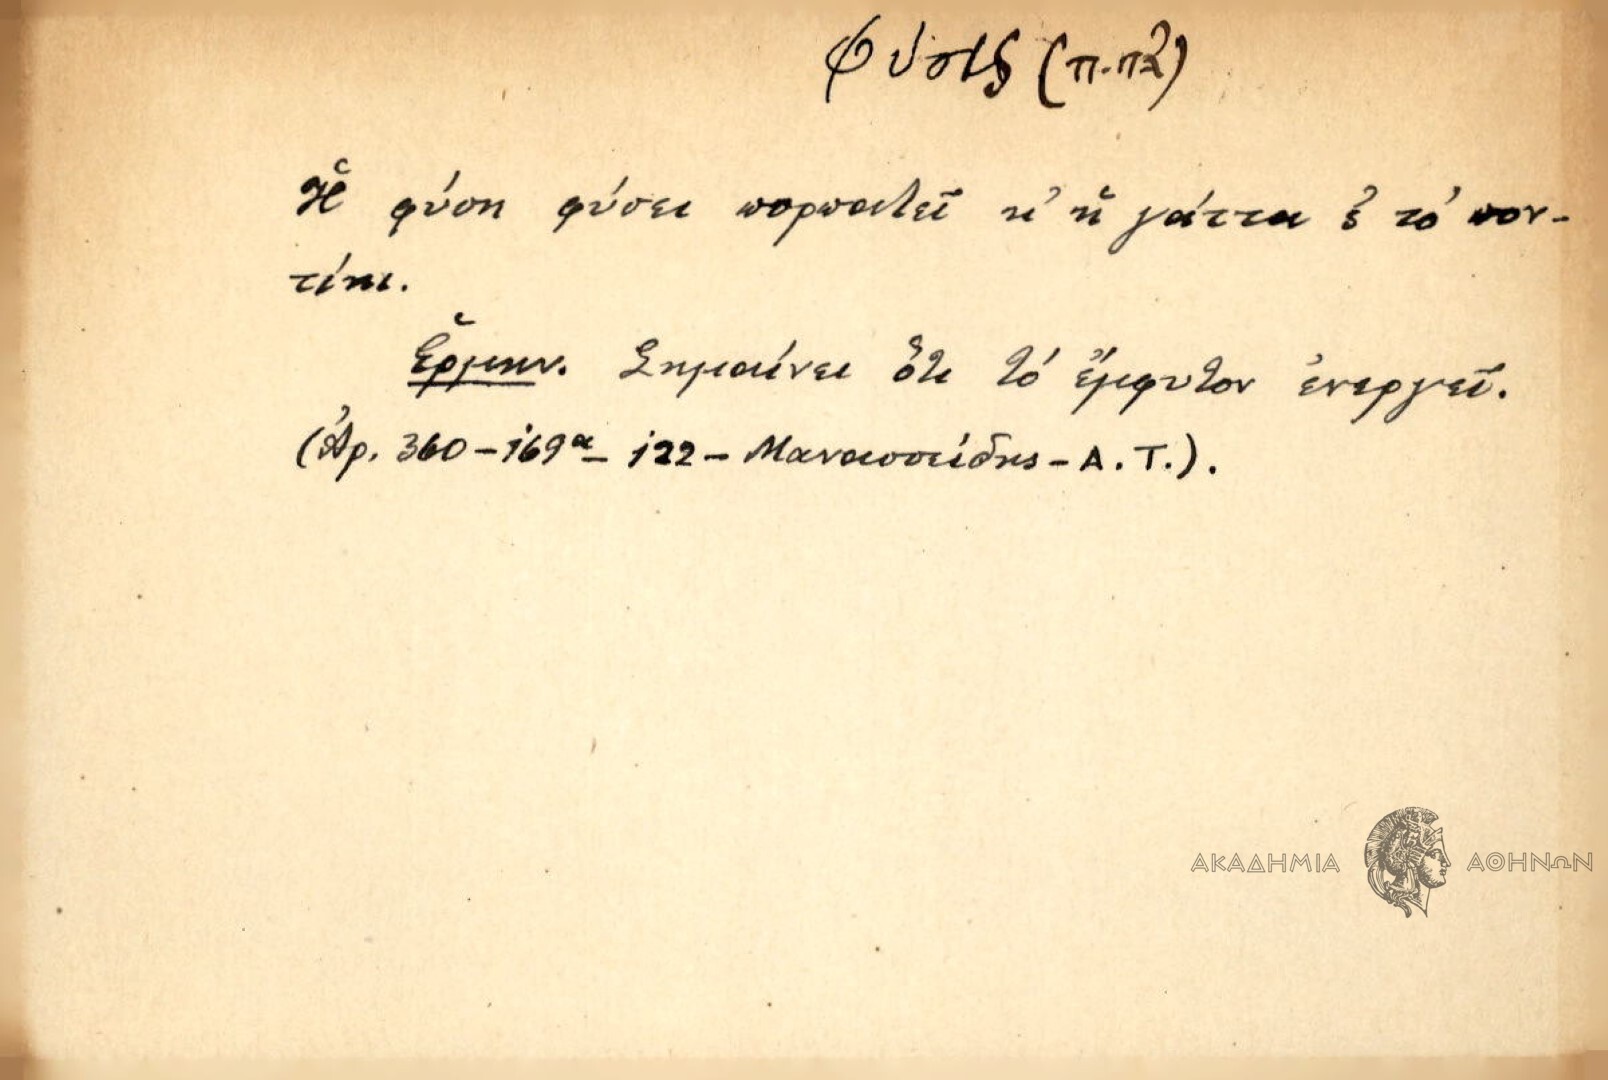 Φύσις (π.πλ)
Ἡ φύση φύσει πορπατεῖ κι' ἡ γάττα 's τὸ πον-
τίκι.
Ἑρμην. Σημαίνει ὅτι τὸ ἔμφυτον ἐνεργεῖ.
(Ἀρ. 360 – 169α – 122 – Μανασσείδης – Α. Τ.).
ΑΚΑΔΗΜΙΑ ΑΘΗΝΩΝ